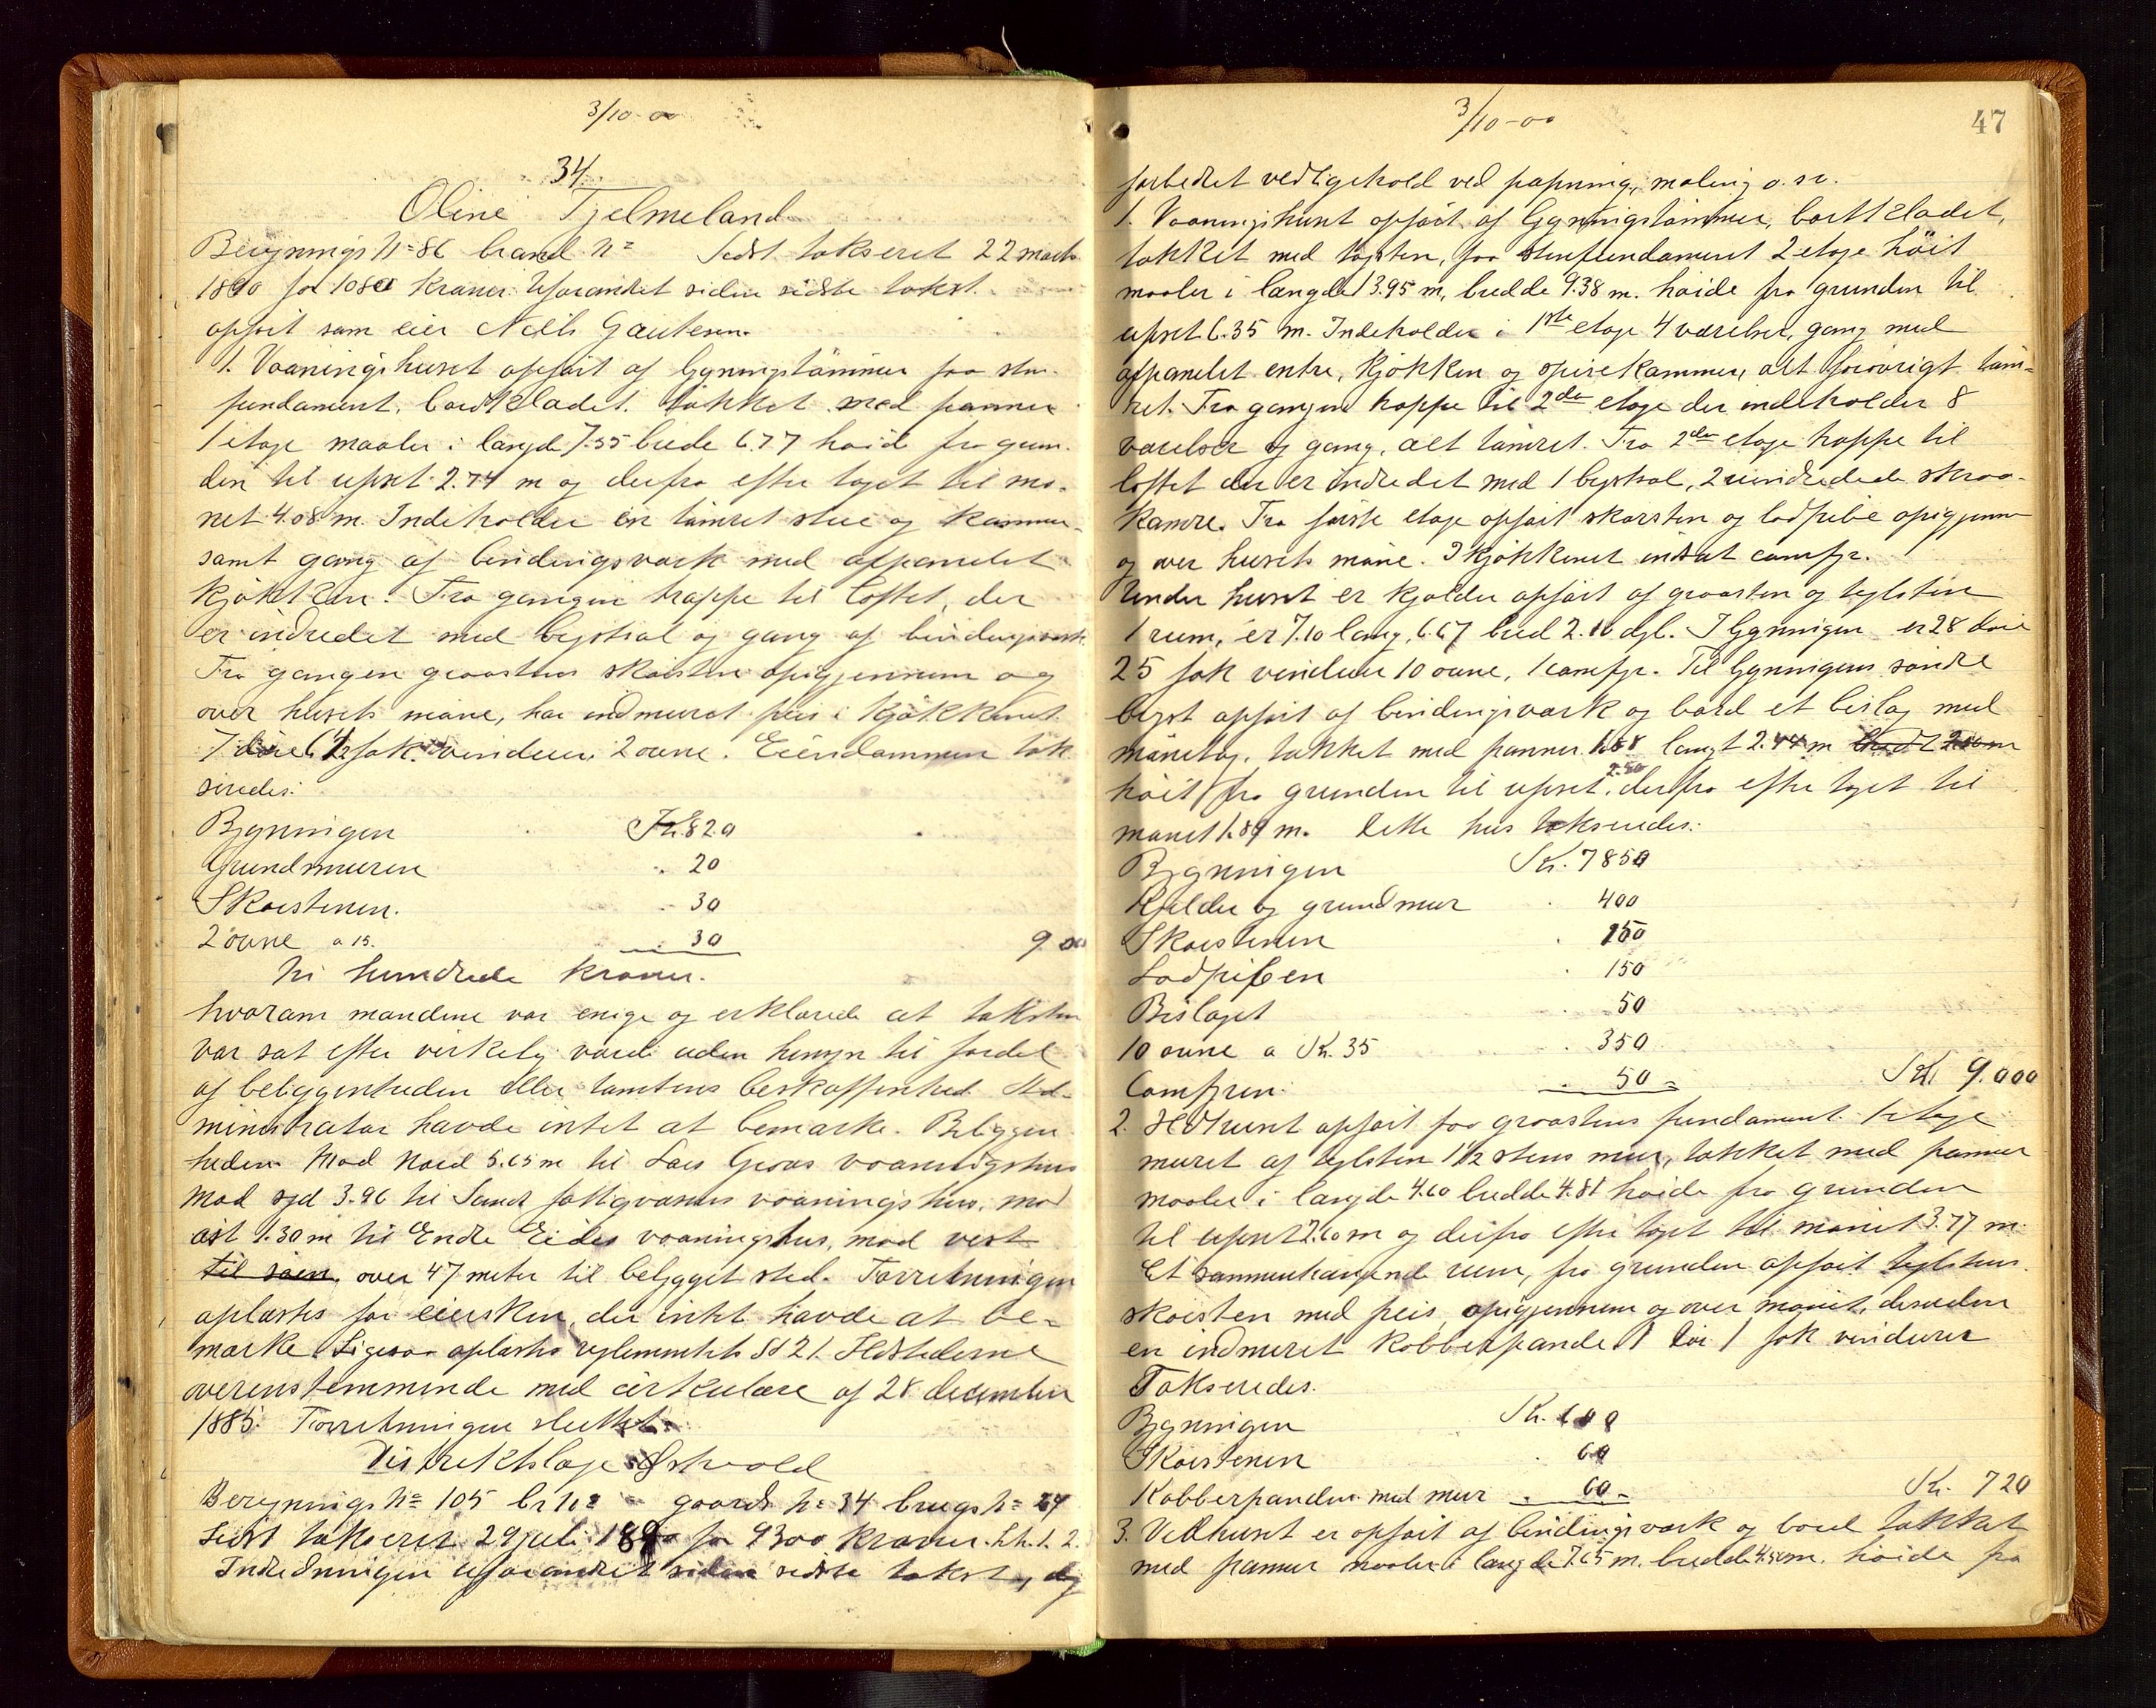 3/10-00
34.
Oline Tjelmeland
Bevynings No 86 brand No Sidst takseret 22 marts
1890 for 1080 kroner. Uforandret siden sidste takst.
opført som eier Niels Gautesen.
1. Vaaningshuset opført af bygningstømmer paa sten-
fundament, bordklædet. takket med panner
1 etage maaler i længde 7.55 brede 6.77 høide fra grun-
den til upset 2.74 m og derfra efter taget til mø-
net 4.08 m. Indeholder en tømret stue og kammer
samt gang af bindingsværk med afpanelet
kjøkken. Fra gangen trappe til loftet, der
er indredet med bystsal og gang af bindingsværk.
Fra gangen graastens skorsten opigjennem og
over husets møne, har indmuret peis i kjøkkenet
7 døre 6 1/2 fak vinduer. 2 ovne. Eiendommen tak
seredes:
Bygningen Kr. 820
Grundmuren " 20
Skorstenen. " 30
2 ovne a 15. " 30 900
Ni hundrede kroner.
hvorom mændene var enige og erklærede at taksten
var sat efter virkelig værdi uden hensyn til fordel
af beliggenheden eller tomtens beskaffenhed. Ad-
ministrator havde intet at bemærke. Beliggen
heden. Mod Nord 5.65 m til Lars Groos vaaningshus
mod syd 3.96 til Sands fattigvæsens vaaningshus, mod
øst 1.30 m til Endre Eides vaaningshus, mod vest
til søen, over 47 meter til bebygget sted. Forretningen
oplæstes for eiersken, der intet havde at be-
mærke. Ligesaa oplæstes reglementets §§ 21. Ildstederne
overenstemmende med cirkulære af 28 december
1885. Forretningen sluttet.
Distriktslæge Østvold
Bevynings No 105 br No - gaards No 34 brugs No 24
Sidst takseret 29 juli 1890 for 9300 kroner. Lh. 1. 2.
Indredningen uforandret siden sidste takst, dog
3/10-00
47
forbedret vedligehold ved papning, maling o.sv.
1. Vaaningshuset opført af bygningstømmer, bordklædet,
takket med tagsten, paa stenfundament 2 etage høit
maaler i længde 13.95 m, bredde 9.38 m. høide fra grunden til
upset 6.35 m. Indeholder i 1ste etage 4 værelser, gang med
afpanelet entre, kjøkken og spisekammer, alt forøvrigt tøm-
ret. Fra gangen trappe til 2den etage der indeholder 8
værelser og gang, alt tømret. Fra 2den etage trappe til
loftet der er indredet med 1 bystsal, 2 uindredede skraa-
kamre. Fra første etage opført skorsten og lodpibe opigjennem
og over husets møne. I kjøkkenet indsat comfyr.
Under huset er kjælder opført af graasten og teglsten
1 rum, er 7.10 lang, 6.67 bred 2.10 dyb. I bygningen er 28 døre
25 fak vinduer 10 ovne, 1 comfyr. Til bygningens søndre
byst opført af bindingsværk og bord et bislag med
mønetag, takket med panner 1.88 langt 2.44 m bredt
høit fra grunden til upset 2.50, derfra efter taget til
mønet 1.89 m. Dette hus takseredes:
Bygningen Kr. 7850
Kjælder og grundmur " 400
Skorstenen " 150
Lodpiben " 150
Bislaget " 50
10 ovne a Kr. 35 " 350
Comfyren. " 50 = Kr. 9.000
2. Ildhuset opført paa graastens fundament 1 etage
muret af teglsten 1 1/2 stens mur, takket med panner
maaler i længde 4.60 bredde 4.81 høide fra grunden
til upset 2.60 m og derfra efter taget til mønet 3.77 m.
Et sammenhængende rum, fra grunden opført teglstens
skorsten med peis, opigjennem og over mønet, desuden
en indmuret kobberpande 1 dør 1 fak vinduer
Takseredes.
Bygningen Kr. 600
Skorstenen " 60
Kobberpanden med mur " 60 Kr. 720
3. Vedhuset er opført af bindingsværk og bord takket
med panner maaler i længde 7.65 m. bredde 4.50 m. høide fra